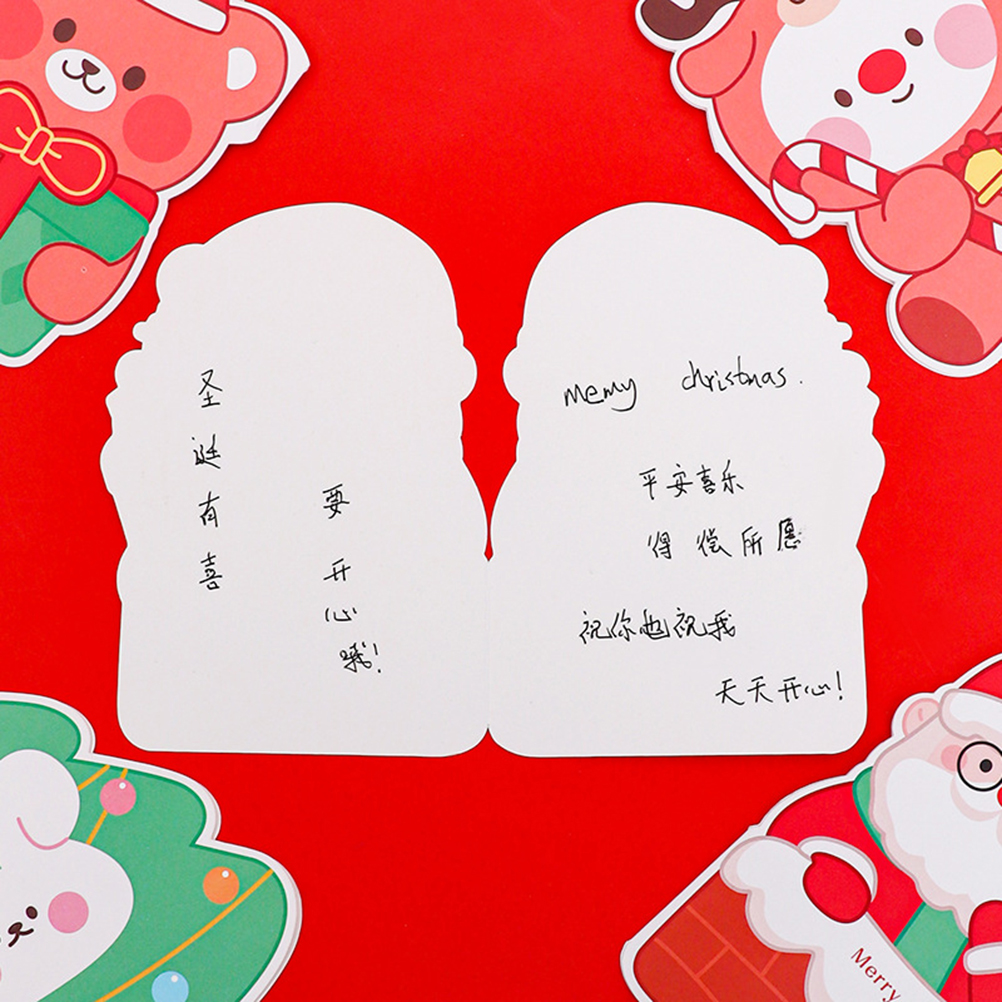 圣诞有喜
要开心哦!
memy christmas.
平安喜乐
得偿所愿
祝你也祝我
天天开心!
Merry